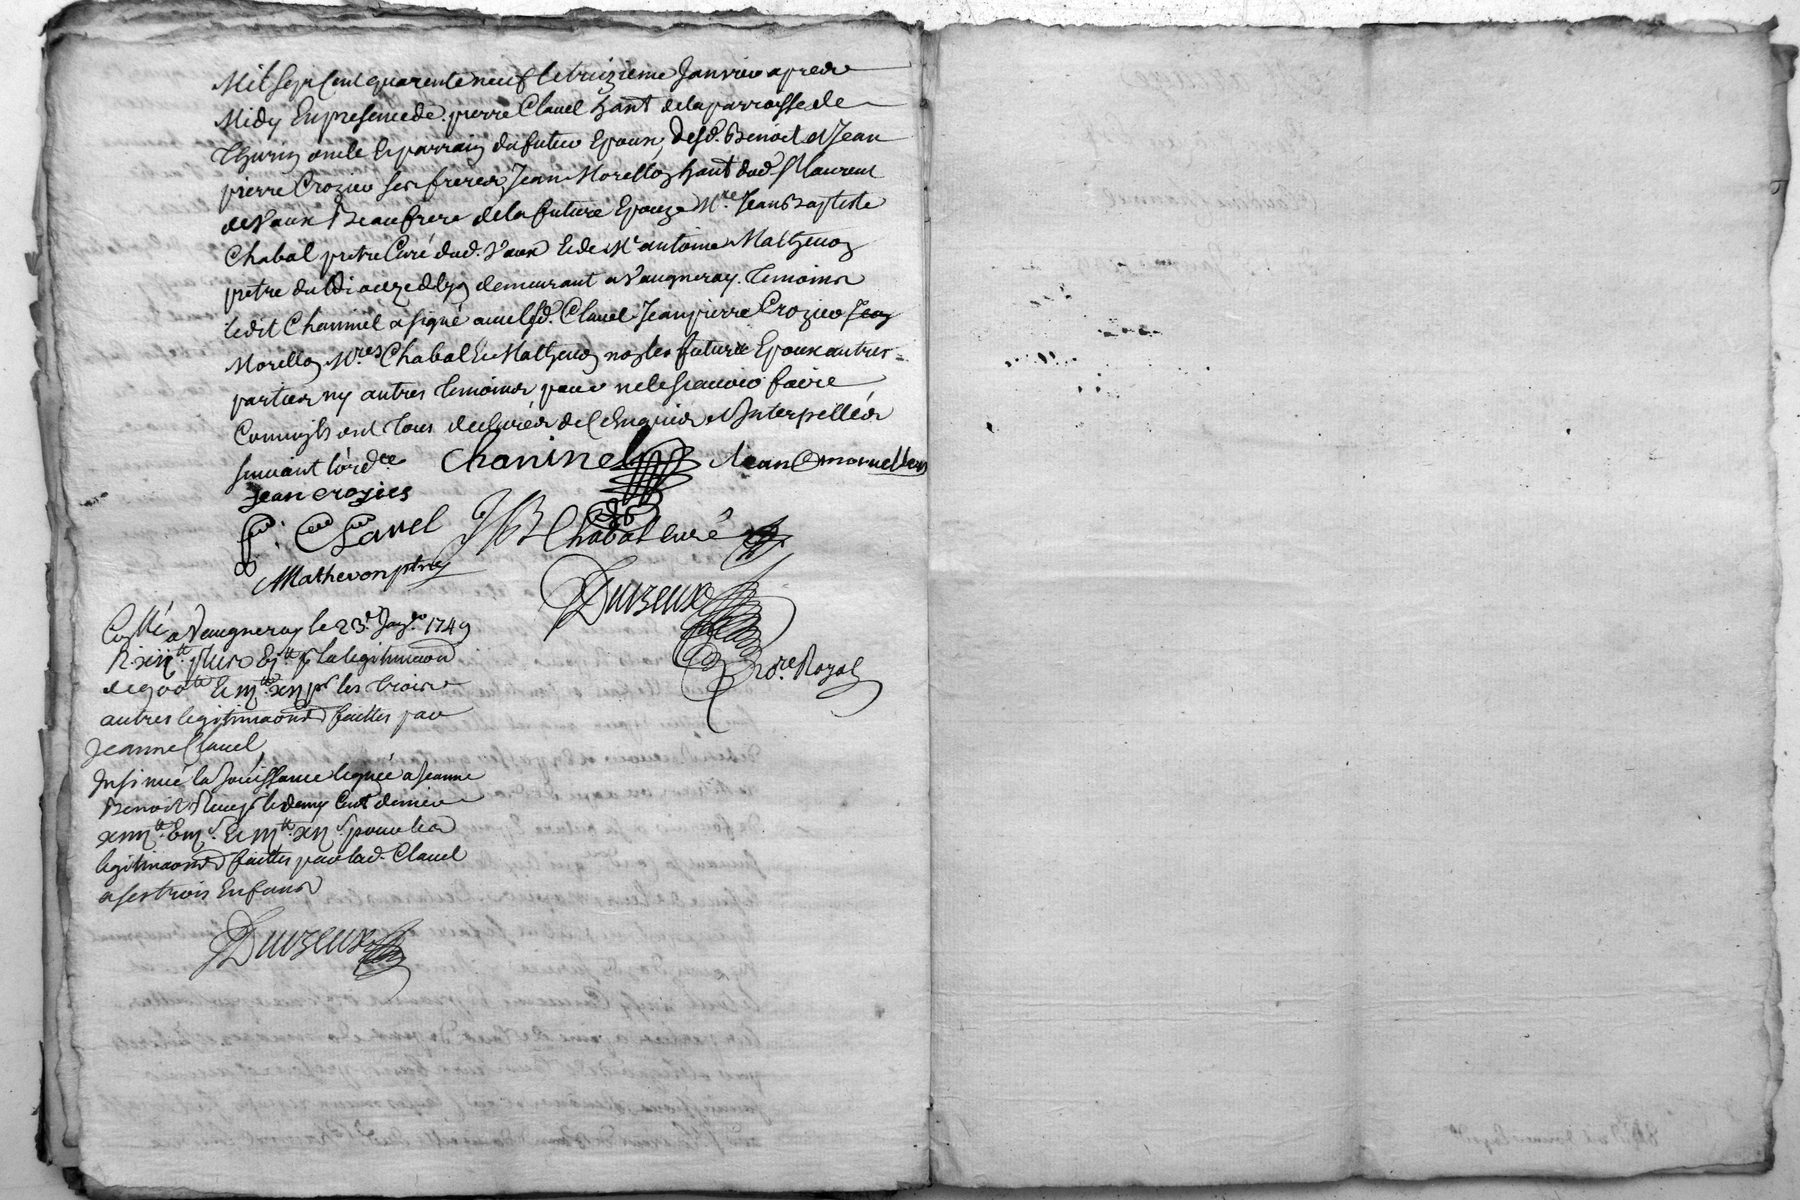 Mil Sept Cent quarente neuf le treizieme Janvier apres
Midy En presence de pierre Clavel hant de la parroisse de
Thurin oncle Et parrain du futur Epoux, desd. Benoit et Jean
pierre Crozier ses freres Jean Morellon hant dud. St Laurent
de Vaux Beaufrere de la future Epouze Mre Jean Baptiste
Chabal pretre Curé dud. Vaux Et de Mr antoine Mathevon
pretre du Dioceze de lyon demeurant a Vaugneray. temoins
ledit Chaninel a signé avec lesd. Clavel Jean pierre Crozier Jean
Morellon Mres Chabal Et Mathevon non les futurs Epoux autres
parties ny autres temoins pour ne le scavoir faire
Comm'ils ont tous declarés de ce Enquis et Interpellés
suivant l'ordce Chaninel Jean mornellon
Jean crozier
p. Clavel JB Chabal curé
Mathevon ptre
Durzeux
No.re Royal
Collé a Vaugneray le 23e Janv. 1749
R. xiij tt plus tt pr la legitimaon
de 900 tt Et pr les trois
autres legitimaons faittes par
Jeanne Clavel
Insinué la Jouissance leguée a Jeanne
Benoit Receu pr le demy Cent denier
xiiij tt s. Et tt s. pour les
legitimaons faittes par lad. Clavel
a ses trois Enfans
Durzeux